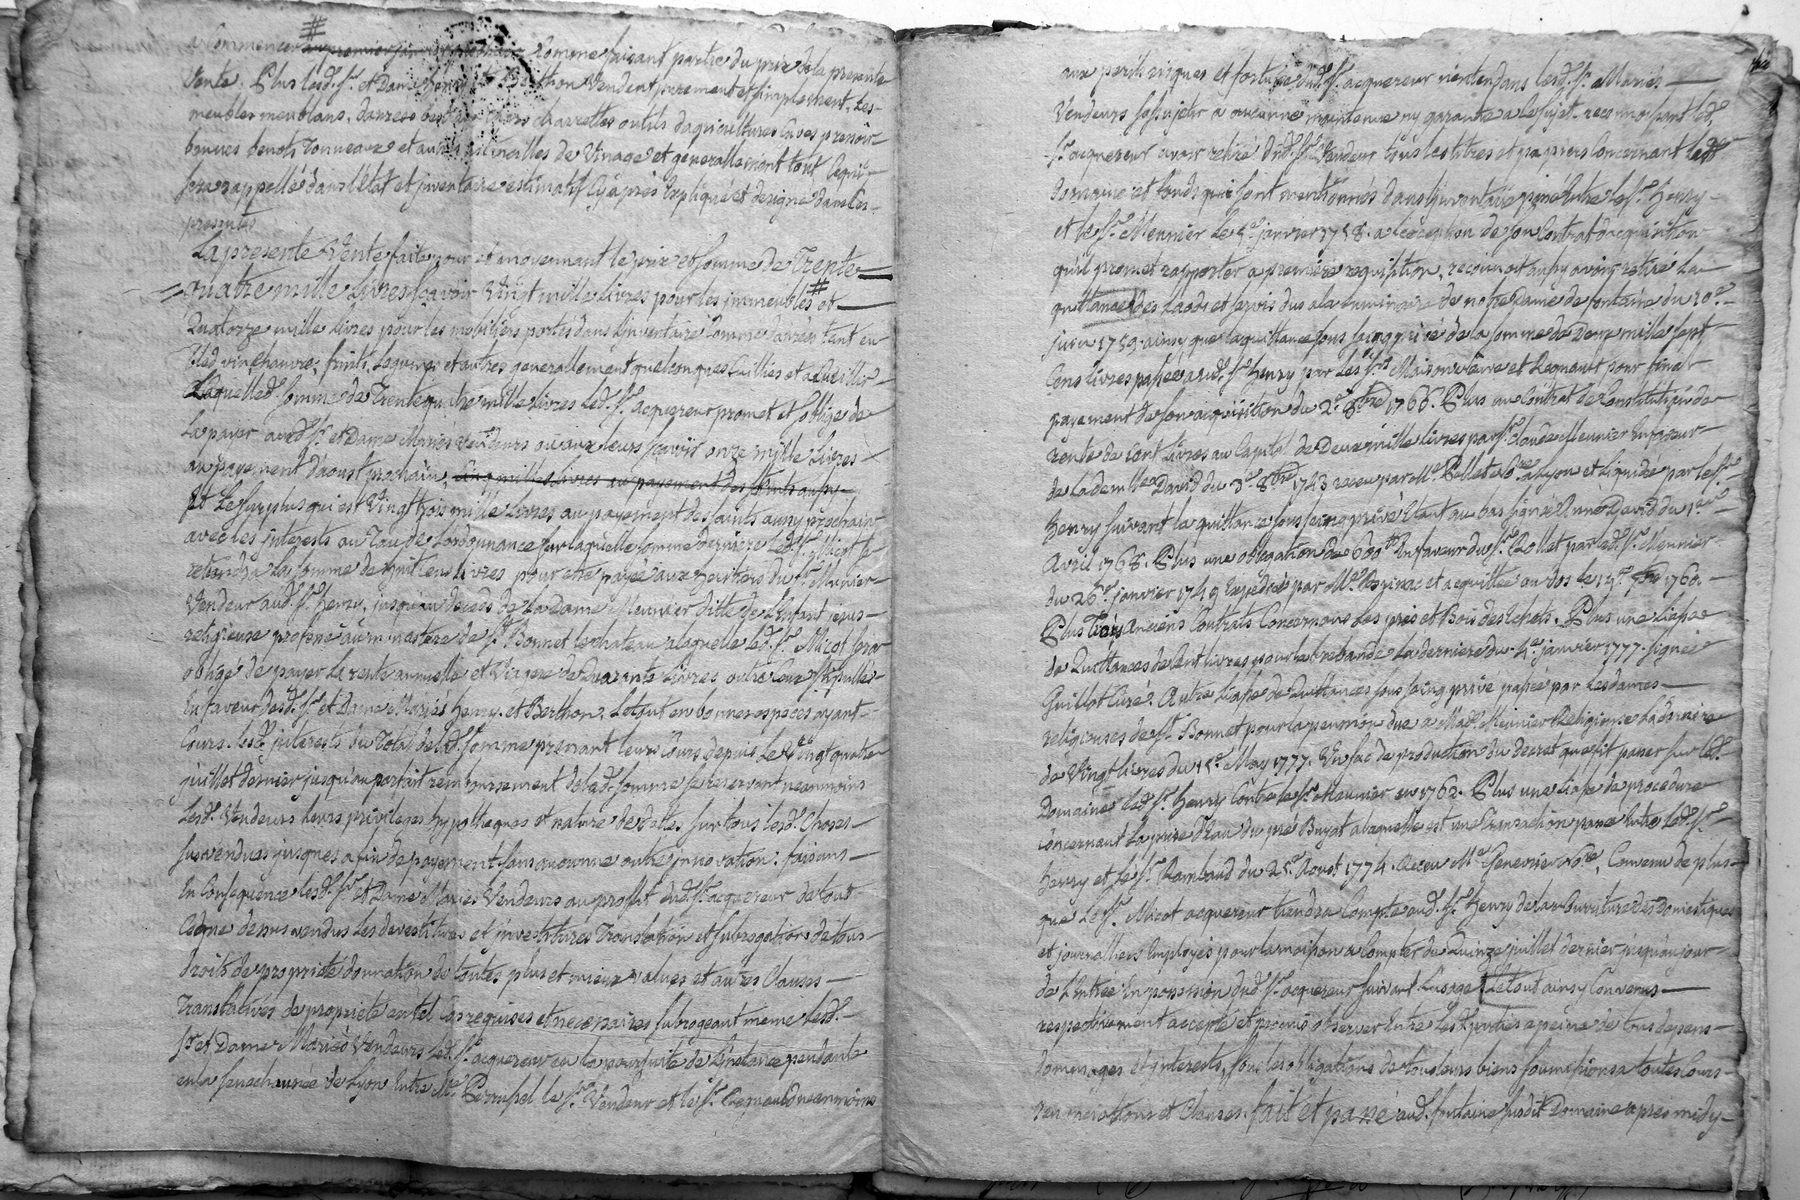 a Commencer Comme faisant partie du prix de la presente
Vente. Plus lesd. Sr. et Dame Henry et Berthon Vendent purement et simplement, Les
meubles meublans, danrees bestiaux chars charrettes outils dagricultures Cuves pressoir
bennes benots Tonneaux et autres de Vinage et generallement tout Cequi
sera rappellé dans l'Etat et inventaire estimatif Cy après Expliqué et designé dans les
presentes
La presente Vente faite pour et moyennant le prix et somme de Trente
quatre mille Livres Scavoir Vingt mille livres pour les immeubles et
Quatorze mille livres pour les mobiliers portés dans l'inventaire Comme danrées tant en
bled vin Chanvre, fruits, Legumes et autres generallement quelconques Cuillies et a Cueillir
Laquelled. somme de Trente quatre mille livres led. Sr. acquereur promet et s'oblige de
La payer auxd. Sr. et Dame Mariés Vendeurs ou aux leurs scavoir onze mille Livres
au payement d'aoust prochain, Cinq mille Livres au payement des Saints ausy
Et Le surplus qui est Vingt trois mille livres au payement des saints ausy prochain
avec les interests au Taux de L'ordonnance sur laquelle somme derniere led. Sr. Micot
retiendra la somme de huit cens livres pour etre payée aux heritiers du Sr. Meunier
Vendeur aud. Sr. Henry, jusqu'au deceds de La Dame Meunier ditte de L'Enfant jesus
religieuse professe au monastere de St. Bonnet le chateau a laquelle led. Sr. Micot sera
obligé de payer la rente annuelle et Viagere de Quarante Livres outre Ceux stipullés
En faveur desd. Sr. et Dame Mariés Henry et Berthon, Le tout en bonnes especes ayant
Cours. Lesd. interests du Total de lad. somme prenant leurs Cours depuis Le Vingt quatre
juillet dernier jusqu'au parfait remboursement de lad. somme se reservant neanmoins
Lesd. Vendeurs leurs privileges hypotheques et nature de dettes sur tous lesd. Choses
sus vendues jusques a fin de payement sans aucunne autre innovation. faisans
En Consequence lesd. Sr. et Dame Mariés Vendeurs au profit dud. Sr. acquereur de tout
Ce que dessus vendus Les devestitures et investitures Translation et subrogations de tous
droits de proprieté donnation de toutes plus et mieux values et autres Clauses
Translatives de proprieté en tel Cas requises et necessaires subrogeant meme lesd.
Sr. et Dame Mariés Vendeurs led. Sr. acquereur en la poursuite de L'instance pendante
en la Senechaussée de Lyon Entre Me. Perrussel le Sr. Vendeur et le Sr. neanmoins
aux perils risques et fortune dud. Sr. acquereur n'entendans lesd. Sr. Mariés
Vendeurs s'assujetir a aucunne maintenue ny garantie a le sujet. reconnoissant led.
Sr. acquereur avoir retiré dud. Sr. Vendeur tous les titres et papiers Concernant led.
domaine et fonds qui sont mentionnés dans L'inventaire passé Entre le Sr. Henry
et le Sr. Meunier Le 5e. janvier 1758. a l'exception de son Contrat d'acquisition
qu'il promet rapporter a premiere requisition, reconnoit aussy avoir retiré La
quittance des Laods et servis dus a la Luminaire de notre dame de fontaine du 10e.
juin 1759. ainsy que la quittance sous seing privé de la somme de Deux mille sept
Cens livres passée aud. Sr. Henry par les Srs. Maisonneuve et Regnault pour final
payement de son acquisition du 2e. 8bre 1766. Plus un Contrat de Constitution de
rente de Cent Livres au Capital de Deux mille livres par Sr. Claude Meunier En faveur
de la demlle. David du 3e. 8bre 1743 receu par Me. Pellet Nore. a Lyon et liquidée par le Sr.
Henry suivant la quittance sous seing privé Etant au bas signée David du 1er.
avril 1768. Plus une obligation de 600ll En faveur du Sr. Rollet par led. Sr. Meunier
du 26e. janvier 1749 Expediée par Me. et acquittée au dos le 1760.
Plus Trois anciens Contrats Concernans Les prés et Bois des Plus une Liasse
de Quittances de Cent livres pour la prebande La derniere du 4e. janvier 1777. signé
Guillot Curé. Autre Liasse de Quittances sous seing privé passée par Les dames
religieuses de St. Bonnet pour la pension due a Made. Meunier Religieuse La derniere
de Vingt livres du May 1777. Un sac de production du Decret que fit passer sur led.
Domaine led. Sr. Henry Contre le Sr. Meunier en 1762. Plus une Liasse de procedure
Concernant la prise d'Eau du pré Buyat a laquelle est une Transaction passée Entre led. Sr.
Henry et le Sr. Rambaud du 25e. Aoust 1774. Receu Me. Genevrier Nore. Convenu de plus
que Le Sr. Micot acquereur tiendra Compte aud. Sr. Henry de la nourriture des Domestiques
et journaliers Employés pour la moisson a Compter du Quinze juillet dernier jusqu'au jour
de L'entrée En possession dud. Sr. acquereur suivant L'usage. Le tout ainsy Convenus
respectivement accepté et promis observer Entre Les parties a peine de tous depens
dommages et interests, sous les obligations de tous leurs biens soumissions a toutes Cours
renonciations et Clauses. fait et passé aud. fontaine susdit Domaine apres midy